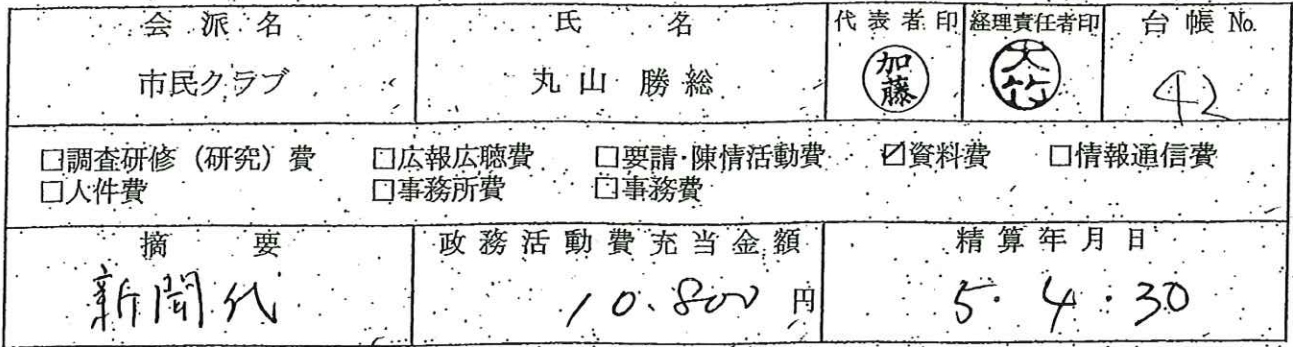 会派名 氏名 代表者印 経理責任者印 台帳No.
市民クラブ 丸山勝総 加藤 大竹 42
□調査研修（研究）費 □広報広聴費 □要請・陳情活動費 ☑資料費 □情報通信費
□人件費 □事務所費 □事務費
摘要 政務活動費充当金額 精算年月日
新聞代 10.800円 5.4.30